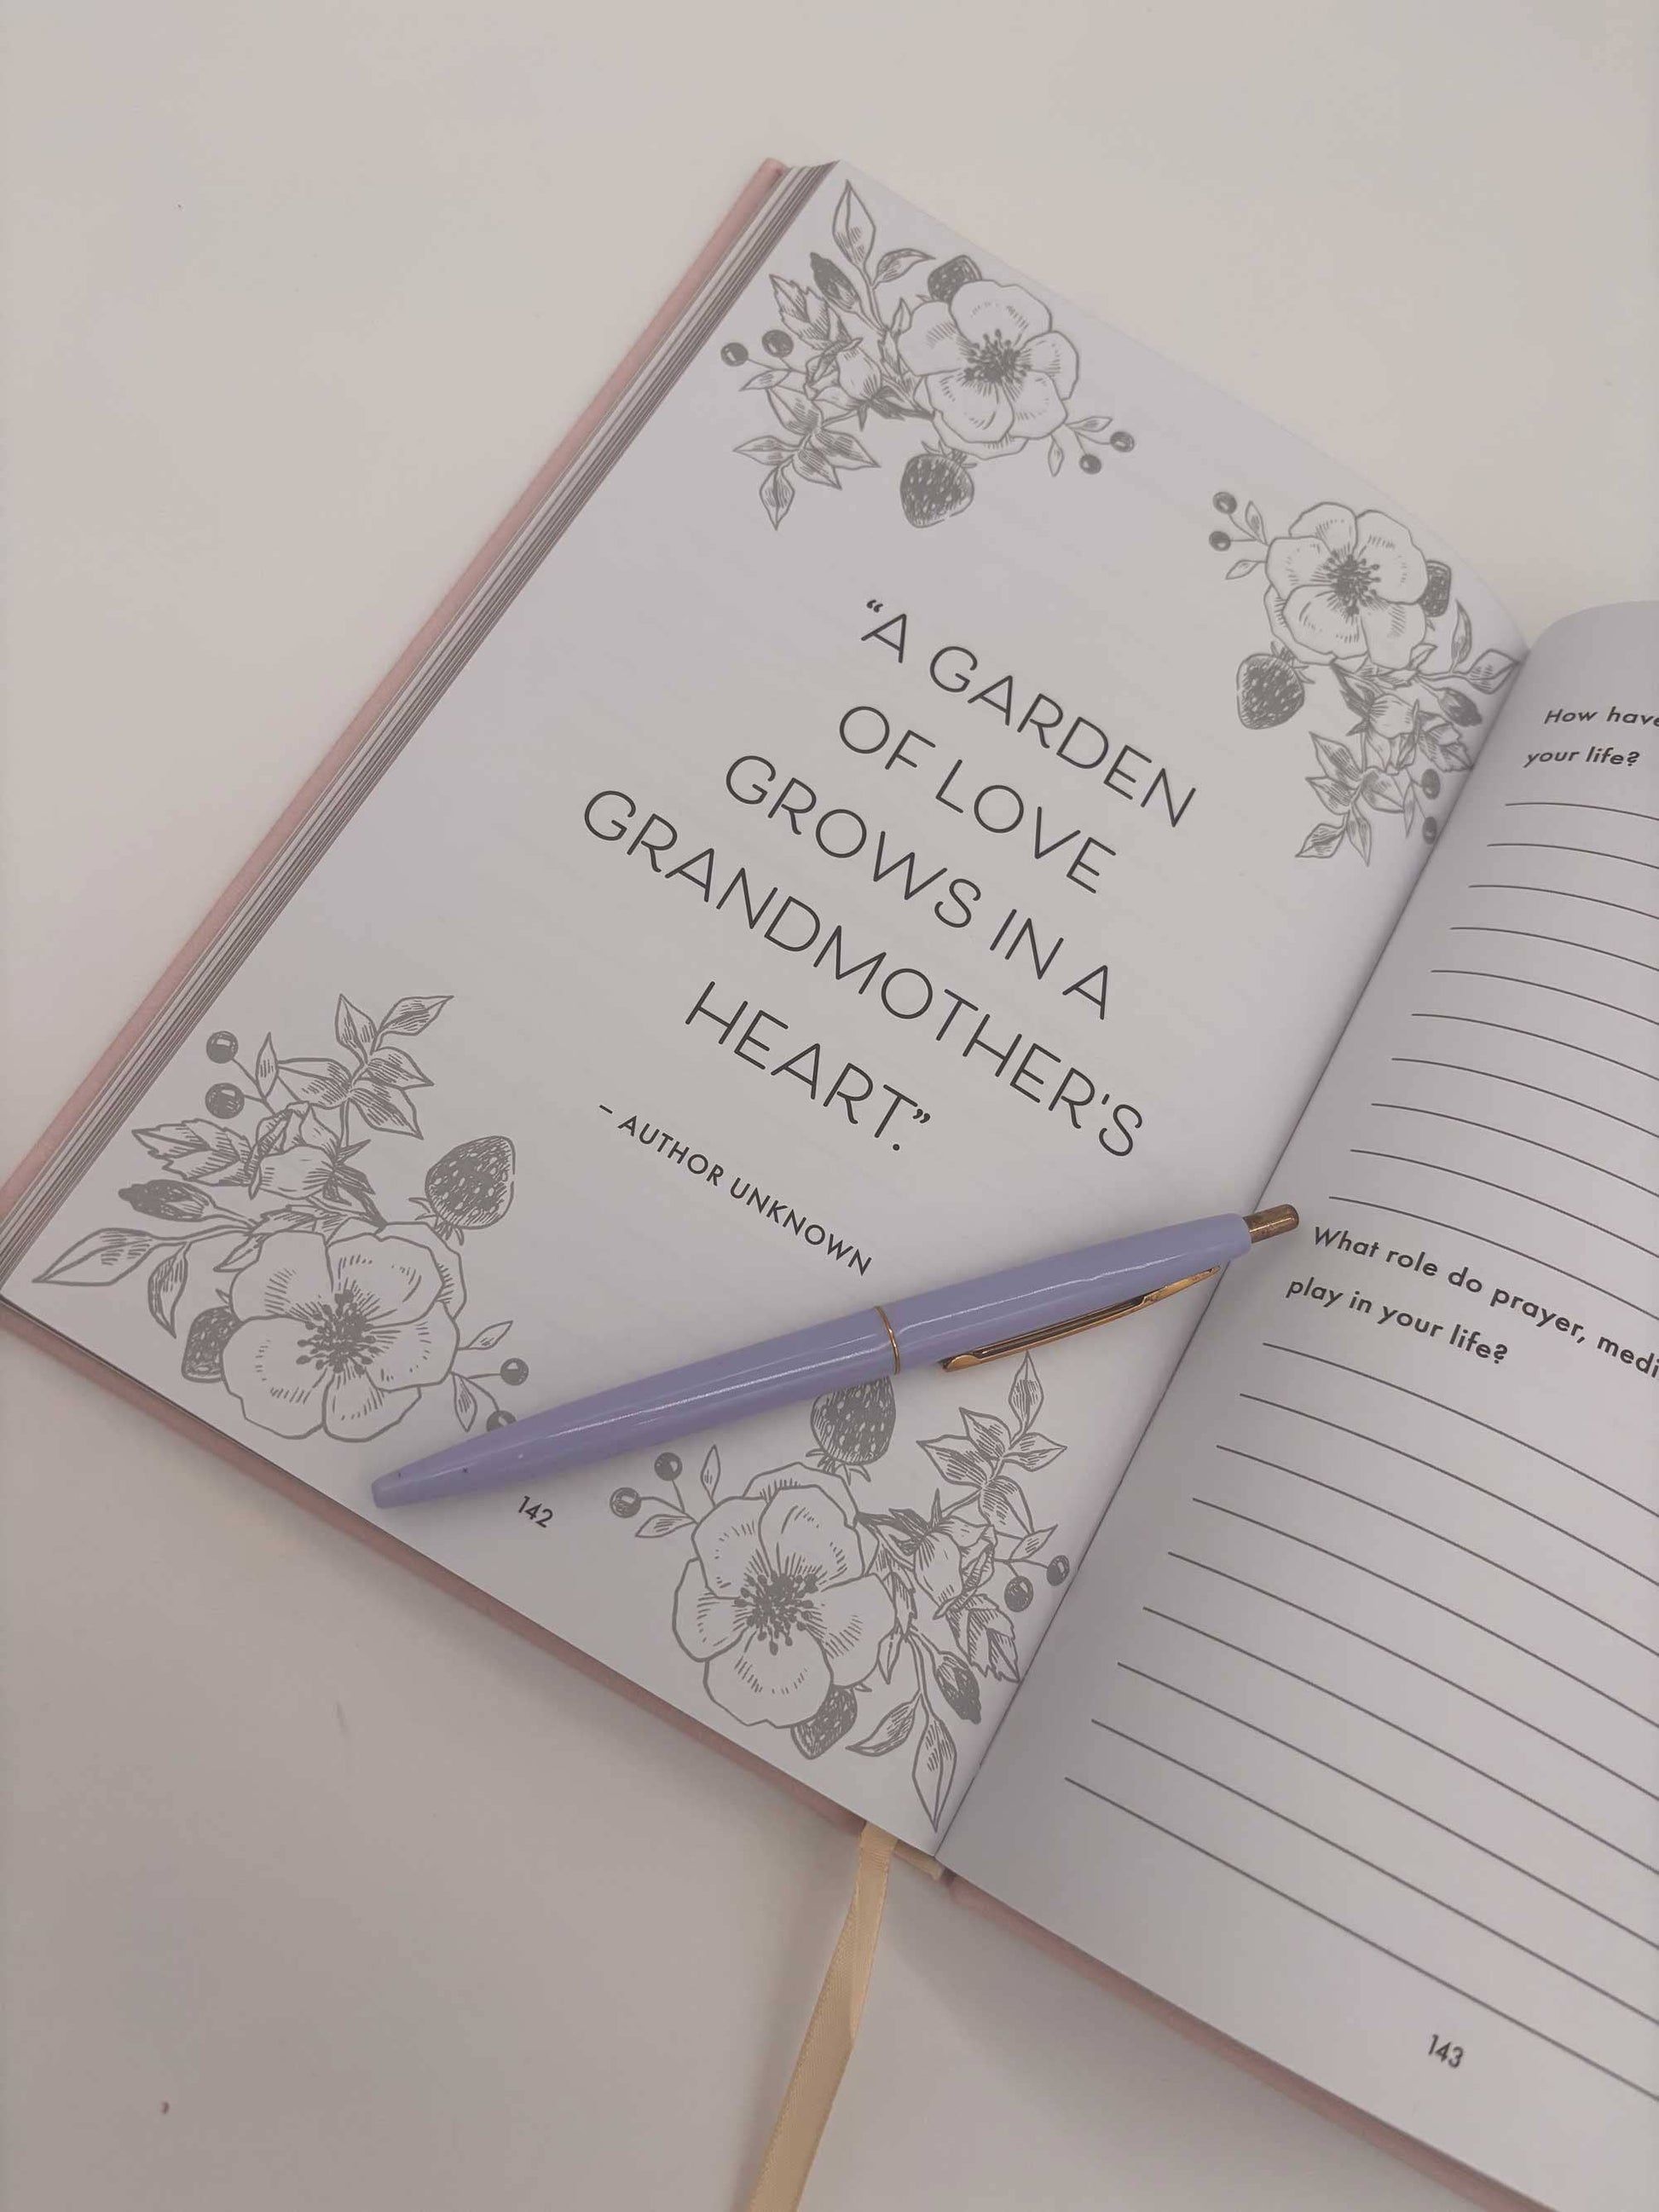 “A GARDEN
OF LOVE
GROWS IN A
GRANDMOTHER'S
HEART.”
– AUTHOR UNKNOWN
142
How have
your life?
What role do prayer,
play in your life?
143